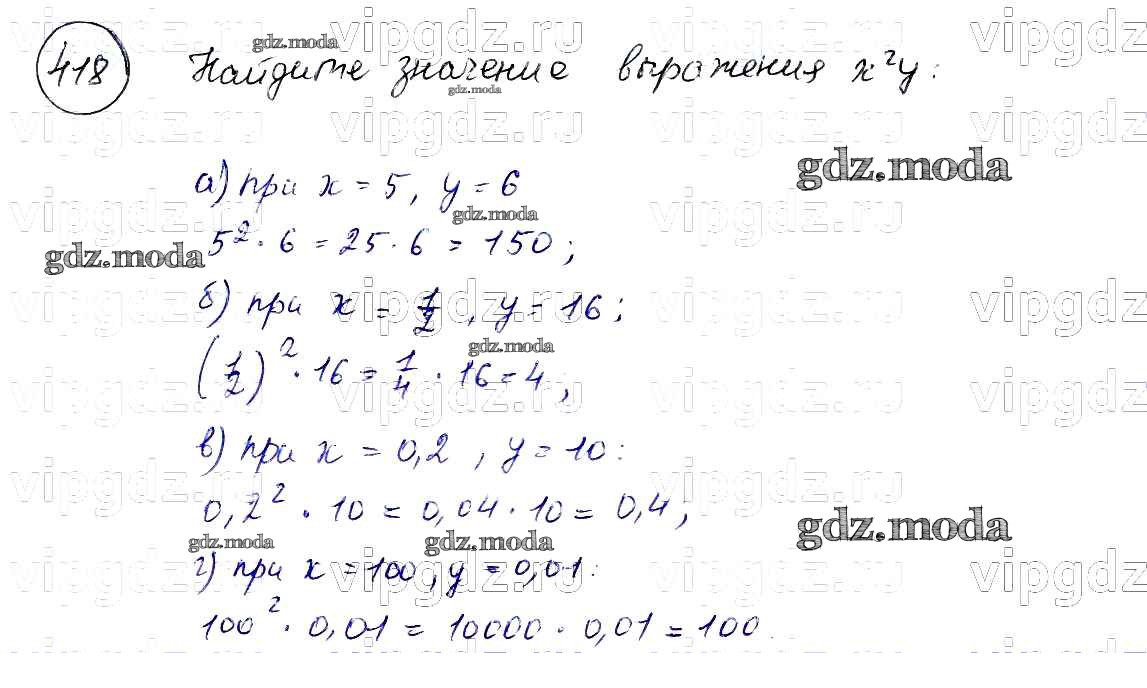 418 Найдите значение выражения x²y:
а) при x = 5, y = 6
5² · 6 = 25 · 6 = 150;
б) при x = 1/2, y = 16;
(1/2)² · 16 = 1/4 · 16 = 4;
в) при x = 0,2, y = 10:
0,2² · 10 = 0,04 · 10 = 0,4;
г) при x = 100, y = 0,01:
100² · 0,01 = 10000 · 0,01 = 100.
vipgdz.ru
gdz.moda